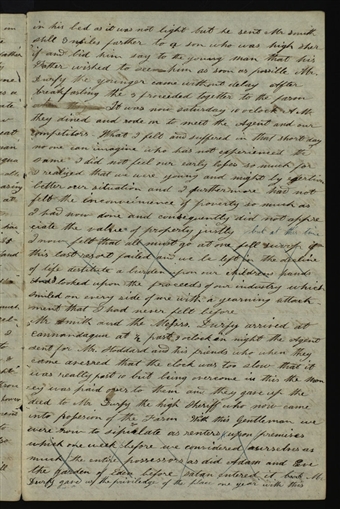 in his bed as it was not light but he sent Mr. Smith
still 3 miles farther to a son who was high sher
if and bid him say to the young man that his
Father wished to see him as soon as possible Mr.
Durfy the younger came without delay after
breakfasting the 3 proceeded together to the farm
It was now saturday 10 o'clock A.M.
they dined and rode on to meet the Agent and our
competitors What I felt and suffered in that short day
no one can imagine who has not experienced the
same I did not feel our early losses so much for
I realyed that we were young and might by exertion
better our situation and I furthermore had not
felt the inconvenience of poverty so much as
I had now done and consequently did not appre
ciate the value of property justly
I now felt that all must go at one fell swoop if
this last resort failed and we be left in the decline
of life destitute a burden upon our childrens hands
I looked upon the proceeds of our industry which
smiled on every side of me with a yearning attach
ment that I had never felt before
Mr. Smith and the Messrs. Durfy arrived at
cannandagua at ½ past 9 o'clock at night the Agent
sent for Mr. Stoddard and his friends who when they
came averred that the clock was too slow that it
was really past 10 but being overcome in this the mon
ey was paid over to them and they gave up the
deed to Mr. Durfy the high sheriff who now came
into possession of the Farm With this Gentleman we
were now to stipulate as renters upon premises
which one week before we considered ourselves as
much the entire possessors as did Adam and Eve
the garden of Eden before satan entered it but Mr.
Durfy gave us the priviledge of the place one year with this